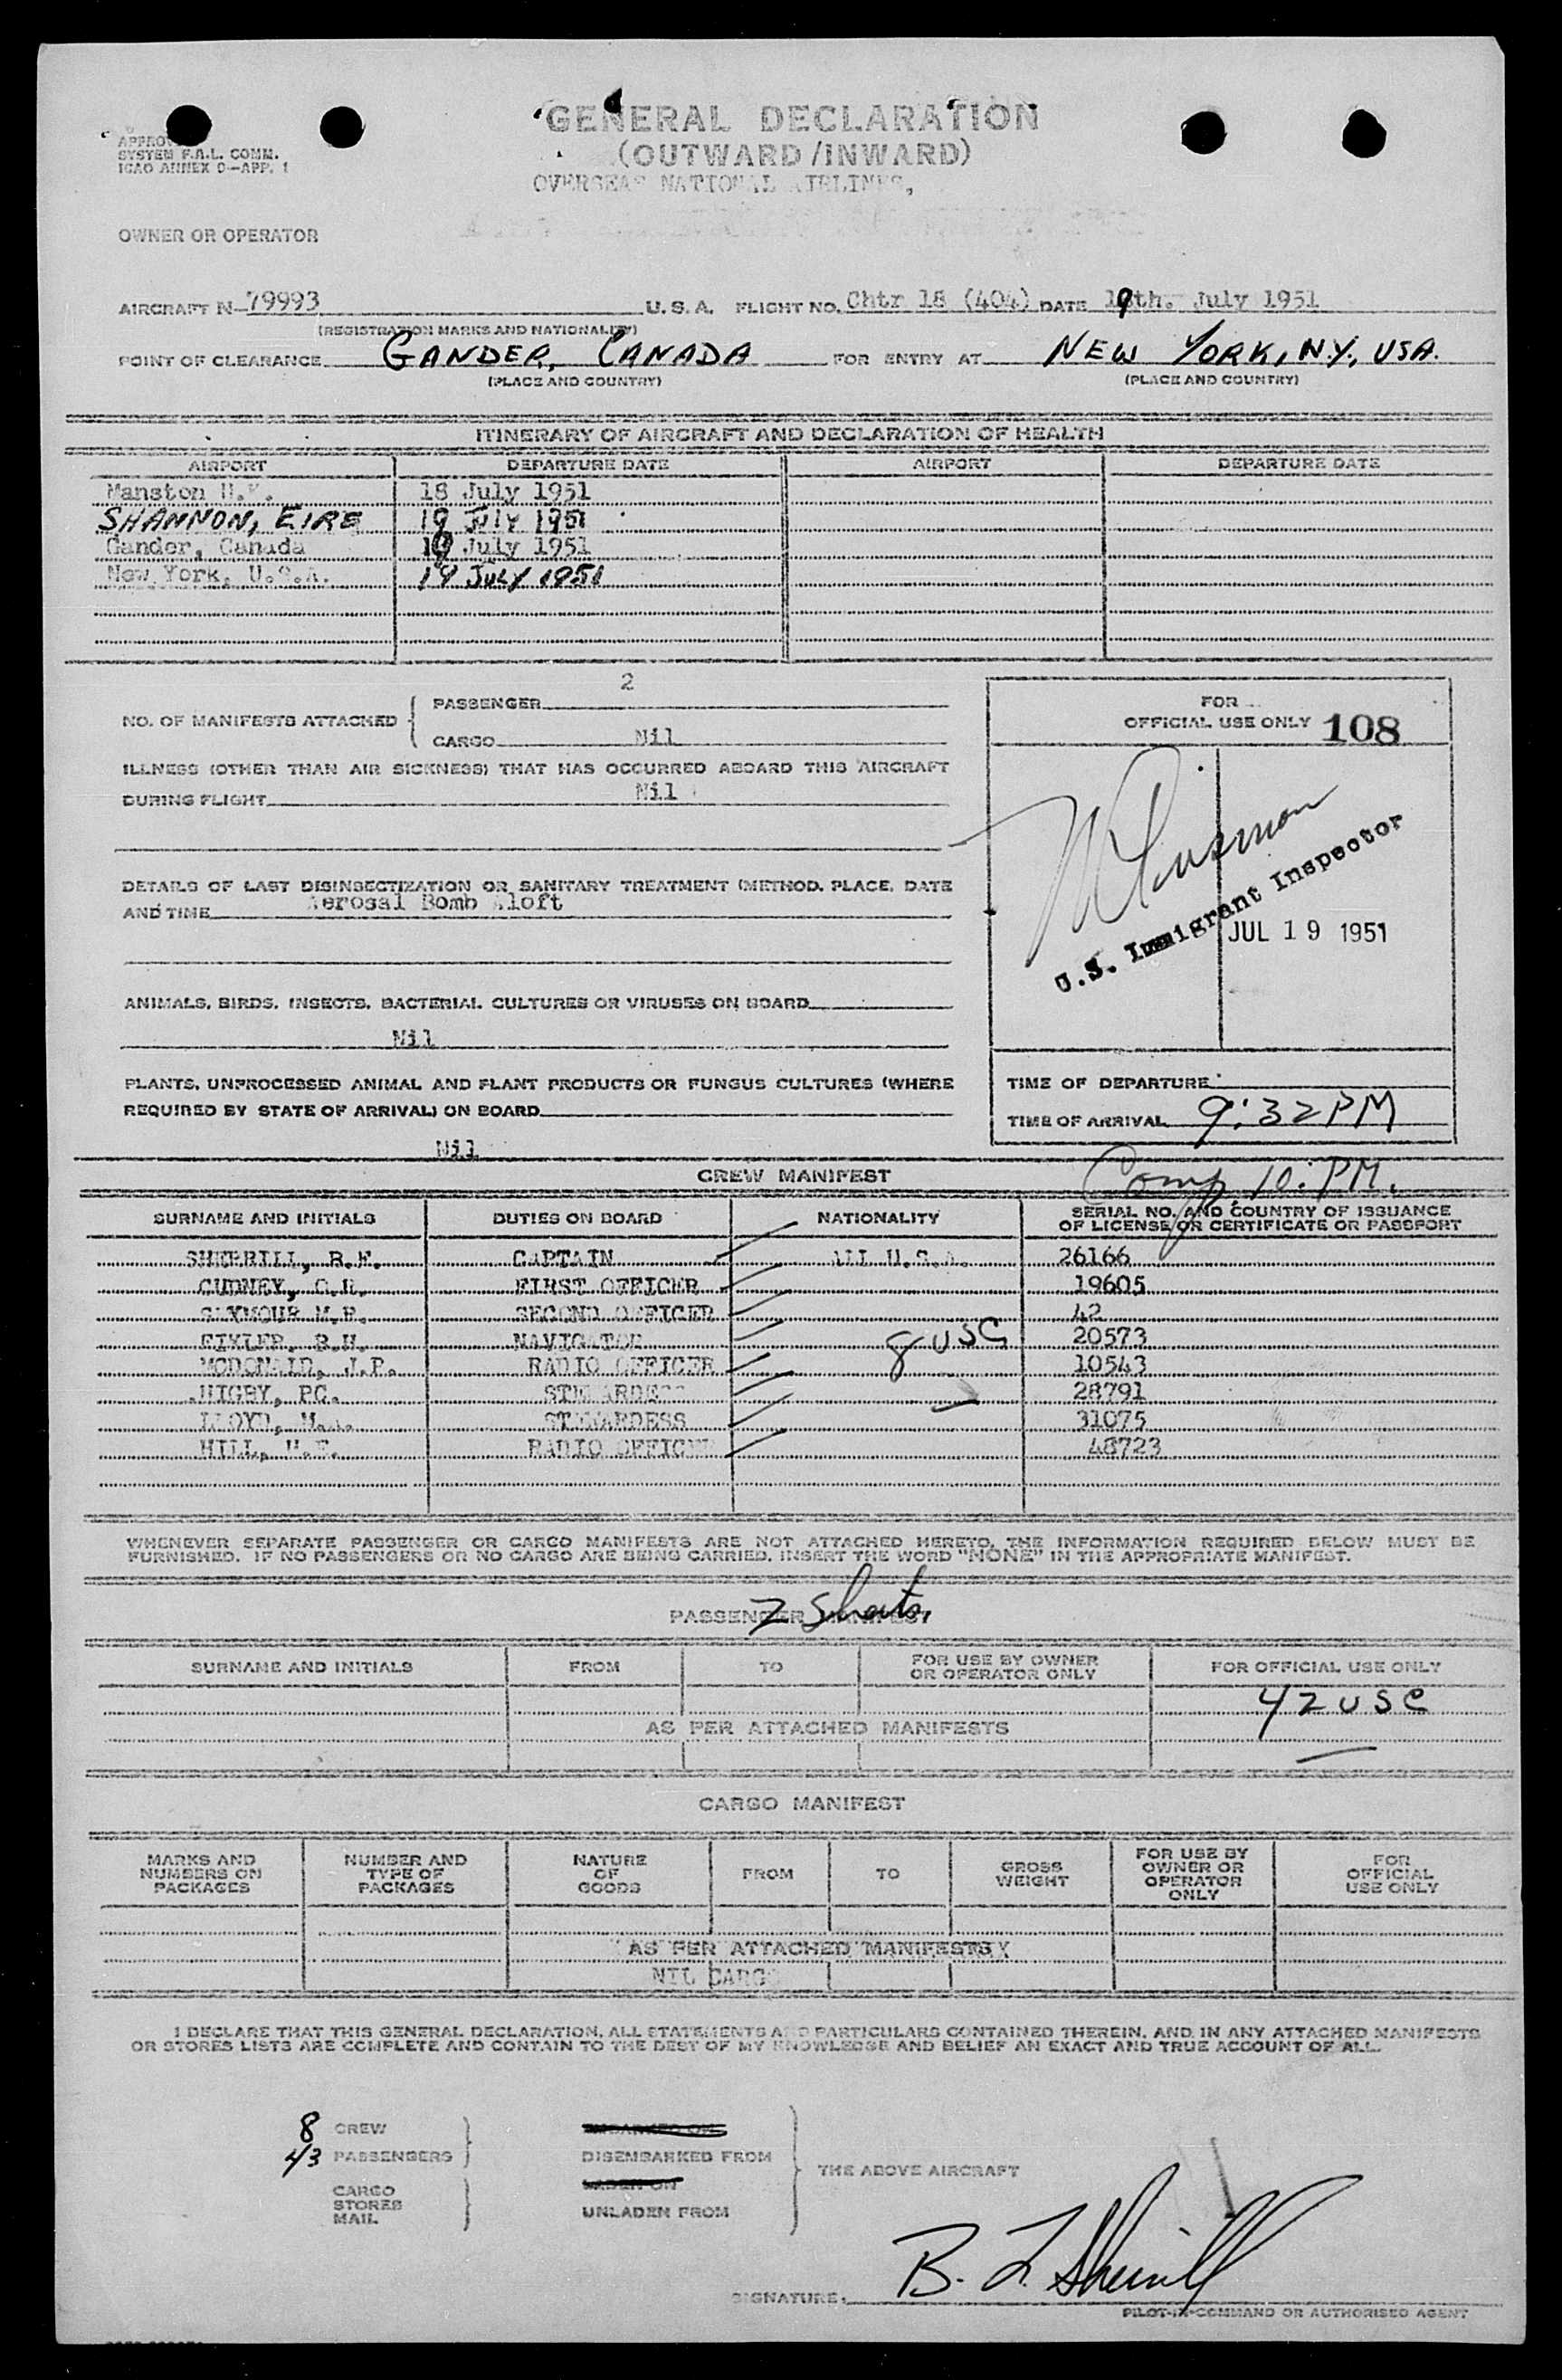 GENERAL DECLARATION
(OUTWARD/INWARD)
OVERSEAS NATIONAL AIRLINES,
SYSTEM F.A.L. COMM.
ICAO ANNEX 9—APP. 1
OWNER OR OPERATOR
AIRCRAFT N-79993 U.S.A. FLIGHT NO. Chtr 18 (404) DATE 19th. July 1951
(REGISTRATION MARKS AND NATIONALITY)
POINT OF CLEARANCE GANDER, CANADA FOR ENTRY AT NEW YORK, N.Y., USA.
(PLACE AND COUNTRY) (PLACE AND COUNTRY)
ITINERARY OF AIRCRAFT AND DECLARATION OF HEALTH
AIRPORT DEPARTURE DATE AIRPORT DEPARTURE DATE
Manston U.K. 18 July 1951
SHANNON, EIRE 19 JULY 1951
Gander, Canada 19 July 1951
New York, U.S.A. 19 JULY 1951
2
NO. OF MANIFESTS ATTACHED { PASSENGER
CARGO Nil
ILLNESS (OTHER THAN AIR SICKNESS) THAT HAS OCCURRED ABOARD THIS AIRCRAFT
DURING FLIGHT Nil
DETAILS OF LAST DISINSECTIZATION OR SANITARY TREATMENT (METHOD, PLACE, DATE
AND TIME Aerosal Bomb Aloft
ANIMALS, BIRDS, INSECTS, BACTERIAL CULTURES OR VIRUSES ON BOARD
Nil
PLANTS, UNPROCESSED ANIMAL AND PLANT PRODUCTS OR FUNGUS CULTURES (WHERE
REQUIRED BY STATE OF ARRIVAL) ON BOARD
Nil
FOR
OFFICIAL USE ONLY 108
U.S. Immigrant Inspector
JUL 19 1951
TIME OF DEPARTURE
TIME OF ARRIVAL 9:32 PM
Comp. 10: PM.
CREW MANIFEST
SURNAME AND INITIALS DUTIES ON BOARD NATIONALITY SERIAL NO. AND COUNTRY OF ISSUANCE
OF LICENSE OR CERTIFICATE OR PASSPORT
SHERRILL, B.F. CAPTAIN ALL U.S.A. 26166
CUDNEY, O.R. FIRST OFFICER 19605
SEYMOUR M.E. SECOND OFFICER 42
B.H. NAVIGATOR 8 USC 20573
MCDONALD, J.P. RADIO OFFICER 10543
HIGBY, PC. STEWARDESS 28791
LLOYD, STEWARDESS 31075
HILL, RADIO OFFICER 48723
WHENEVER SEPARATE PASSENGER OR CARGO MANIFESTS ARE NOT ATTACHED HERETO, THE INFORMATION REQUIRED BELOW MUST BE
FURNISHED. IF NO PASSENGERS OR NO CARGO ARE BEING CARRIED, INSERT THE WORD "NONE" IN THE APPROPRIATE MANIFEST.
PASSENGER MANIFEST
2 Sheets
SURNAME AND INITIALS FROM TO FOR USE BY OWNER
OR OPERATOR ONLY FOR OFFICIAL USE ONLY
42 USC
AS PER ATTACHED MANIFESTS
CARGO MANIFEST
MARKS AND
NUMBERS ON
PACKAGES
NUMBER AND
TYPE OF
PACKAGES
NATURE
OF
GOODS
FROM
TO
GROSS
WEIGHT
FOR USE BY
OWNER OR
OPERATOR
ONLY
FOR
OFFICIAL
USE ONLY
AS PER ATTACHED MANIFESTS
NIL CARGO
I DECLARE THAT THIS GENERAL DECLARATION, ALL STATEMENTS AND PARTICULARS CONTAINED THEREIN, AND IN ANY ATTACHED MANIFESTS
OR STORES LISTS ARE COMPLETE AND CONTAIN TO THE BEST OF MY KNOWLEDGE AND BELIEF AN EXACT AND TRUE ACCOUNT OF ALL.
8 CREW
43 PASSENGERS
CARGO
STORES
MAIL
EMBARKED ON
DISEMBARKED FROM
LADEN ON
UNLADEN FROM
THE ABOVE AIRCRAFT
SIGNATURE, B. F. Sherrill
PILOT-IN-COMMAND OR AUTHORISED AGENT